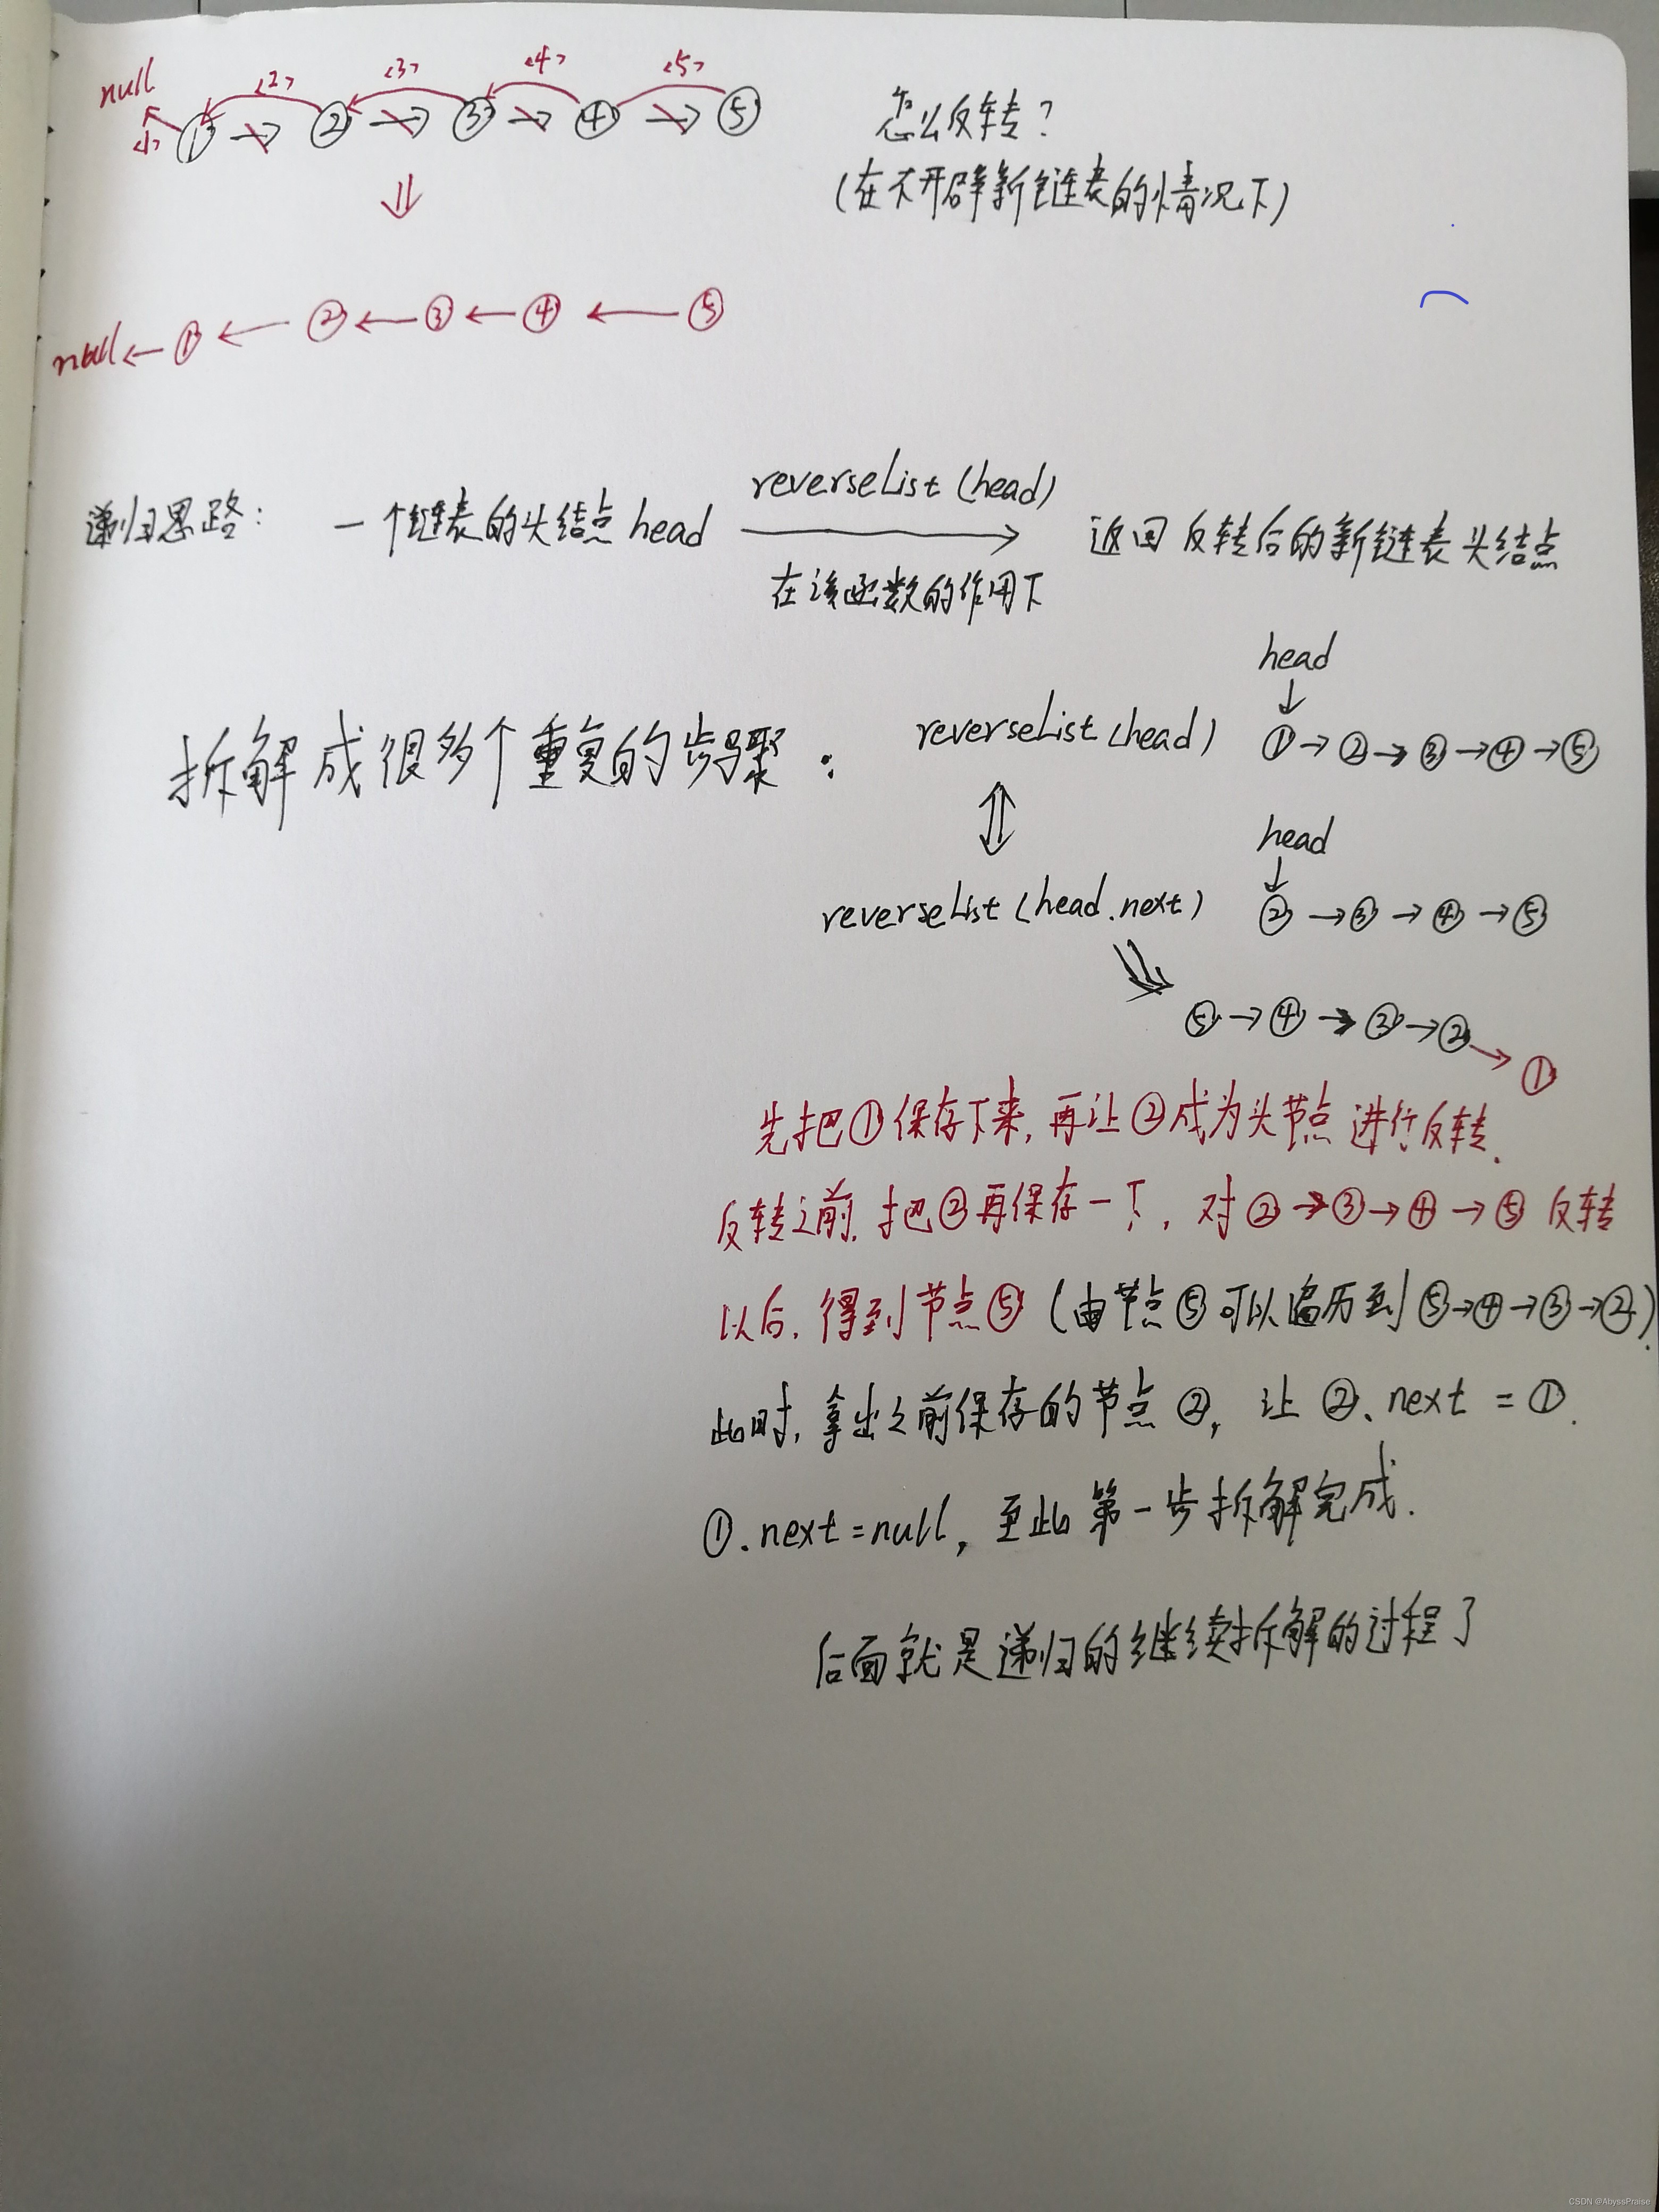 null <1> <2> <3> <4> <5>
① → ② → ③ → ④ → ⑤
怎么反转？
(在不开辟新链表的情况下)
⇓
null ← ① ← ② ← ③ ← ④ ← ⑤
递归思路： 一个链表的头结点 head reverseList (head) 返回反转后的新链表头结点
在该函数的作用下
拆解成很多个重复的步骤：
head
↓
reverseList (head) ① → ② → ③ → ④ → ⑤
⇕
head
↓
reverseList (head.next) ② → ③ → ④ → ⑤
⑤ → ④ → ③ → ② → ①
先把①保存下来, 再让②成为头节点 进行反转.
反转之前, 把②再保存一下, 对②→③→④→⑤ 反转
以后, 得到节点⑤ (由节点⑤可以遍历到⑤→④→③→②).
此时, 拿出之前保存的节点②, 让②.next = ①.
①.next = null, 至此第一步拆解完成.
后面就是递归的继续拆解的过程了
CSDN @AbyssPraise